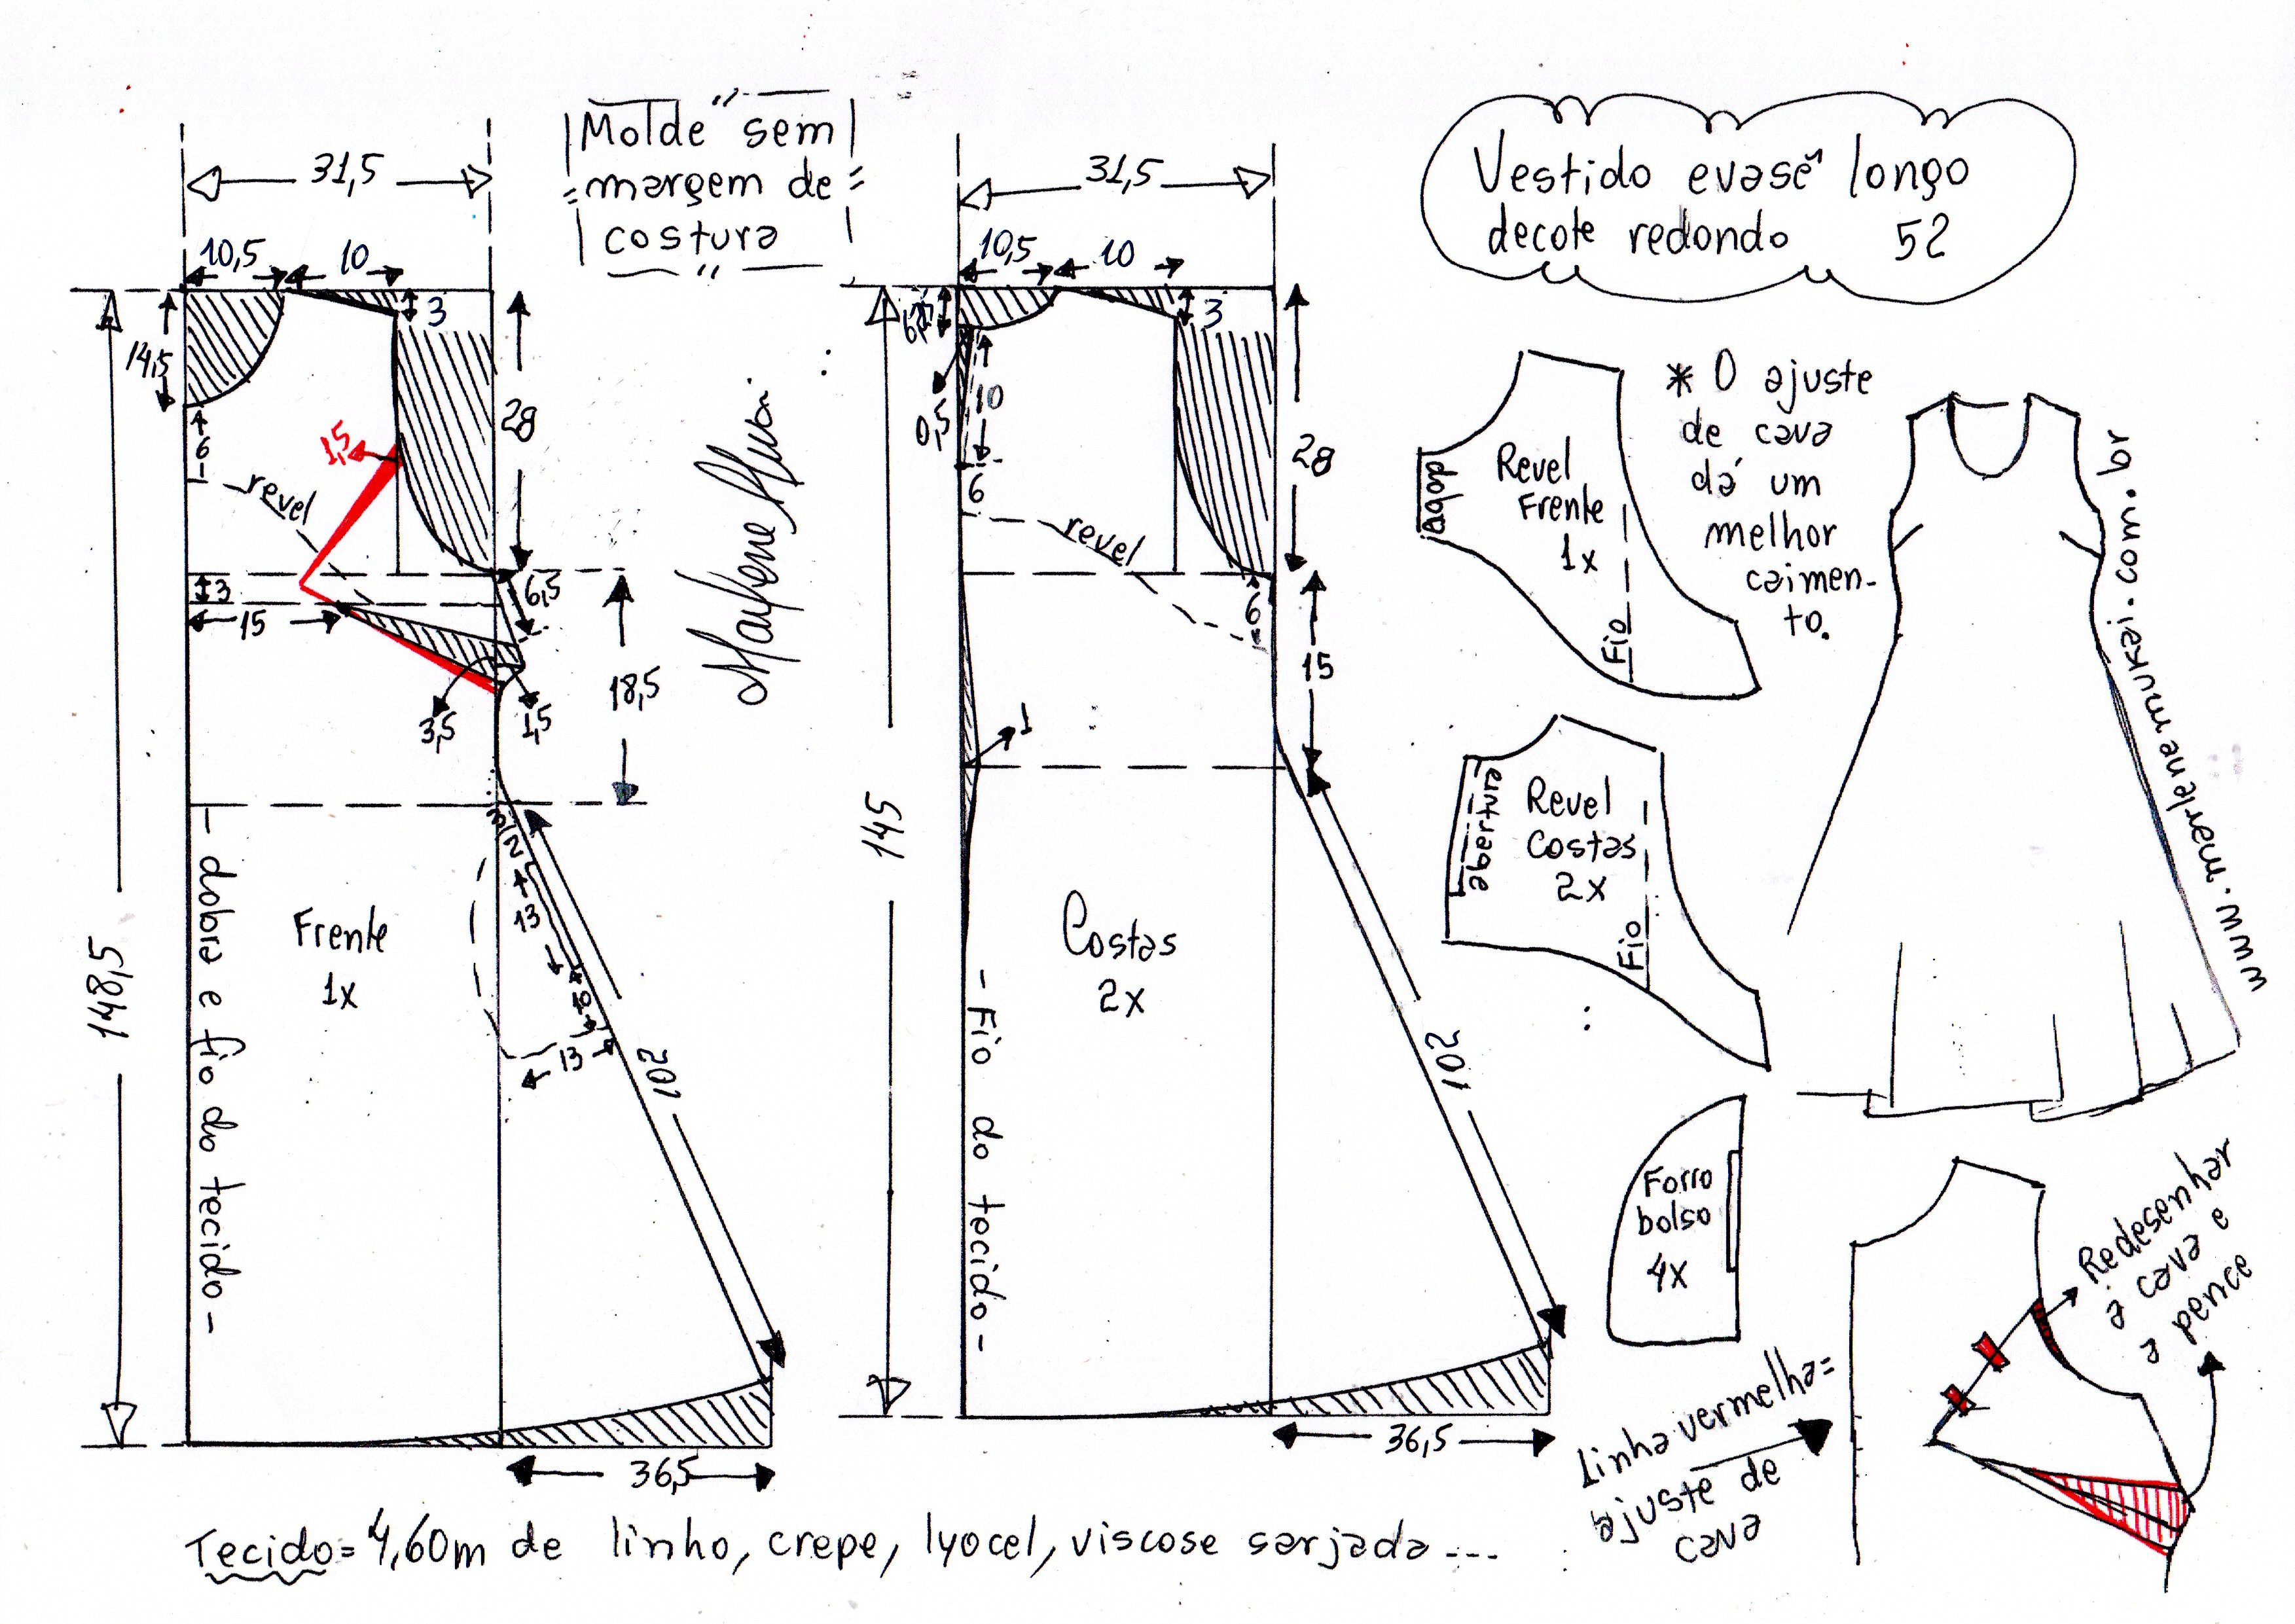 Molde sem
margem de
costura
Vestido evasê longo
decote redondo 52
31,5
10,5
10
3
14,5
6
1,5
revel
28
3
15
6,5
3,5
1,5
18,5
148,5
dobre e fio do tecido
Frente
1x
3
2
13
10
13
102
36,5
31,5
10,5
10
3
0,5
10
6
28
revel
6
15
1
145
Costas
2x
Fio do tecido
102
36,5
Revel
Frente
1x
Fio
* O ajuste
de cava
dá um
melhor
caimen-
to.
www.marlenemukai.com.br
abertura
Revel
Costas
2x
Fio
Forro
bolso
4x
Redesenhar
a cava e
a pence
Linha vermelha=
ajuste de
cava
Tecido= 4,60m de linho, crepe, lyocel, viscose sarjada...